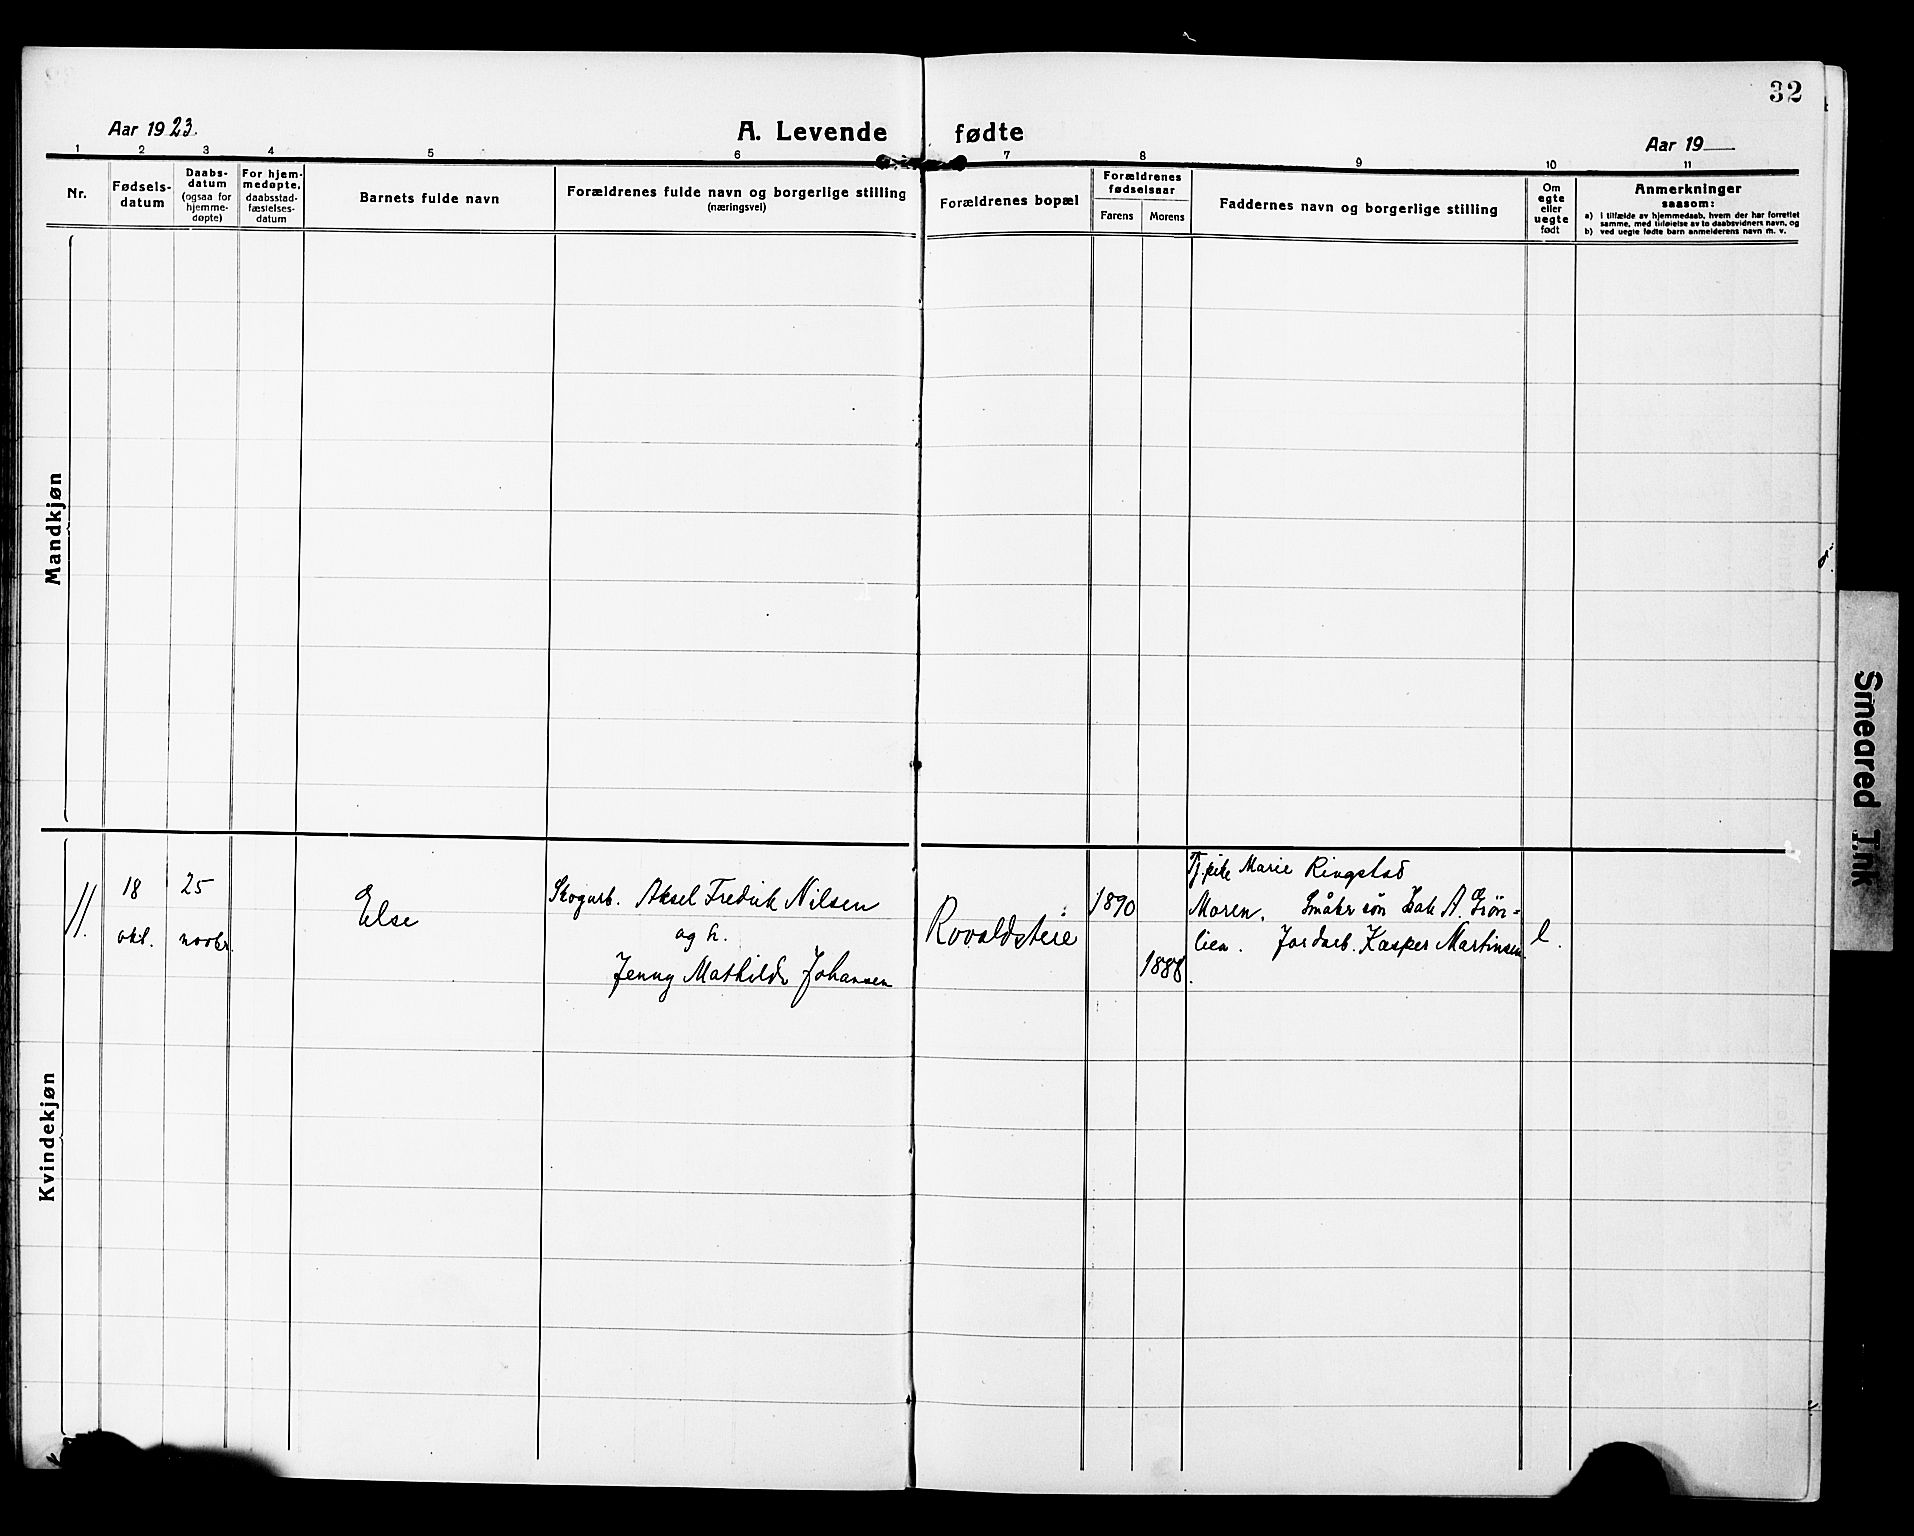 32
Aar 1923.
A. Levende fødte
Aar 19
1 2 3 4 5 6 7 8 9 10 11
Nr.
Fødsels-
datum
Daabs-
datum
(ogsaa for
hjemme-
døpte)
For hjem-
medøpte,
daabsstad-
fæstelses-
datum
Barnets fulde navn
Forældrenes fulde navn og borgerlige stilling
(næringsvei)
Forældrenes bopæl
Forældrenes
fødselsaar
Farens
Morens
Faddernes navn og borgerlige stilling
Om
egte
eller
uegte
født
Anmerkninger
saasom:
a) i tilfælde av hjemmedaab, hvem der har forrettet
samme, med tilføielse av to daabsvidners navn, og
b) ved uegte fødte barn anmelderens navn m. v.
Mandkjøn
Kvindekjøn
11.
18
okt.
25
novbr.
Else
Skogarb. Aksel Fredrik Nilsen
og h.
Jenny Mathilde Johansen
1890
1888.
Tj.pike Marie Ringstad
Moren. Småbr søn A. Grøn-
lien. Jordarb. Kasper Martinsen.
e.
Smeared Ink